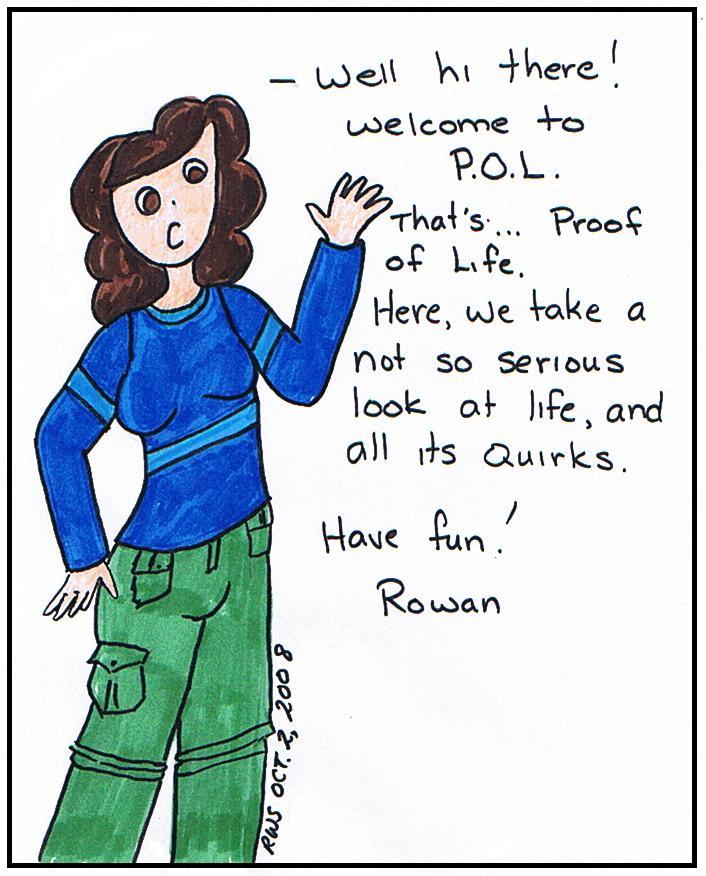 - Well hi there!
Welcome to
P.O.L.
That's... Proof
of Life.
Here, we take a
not so serious
look at life, and
all its Quirks.
Have fun!
Rowan
RWS OCT. 2, 2008